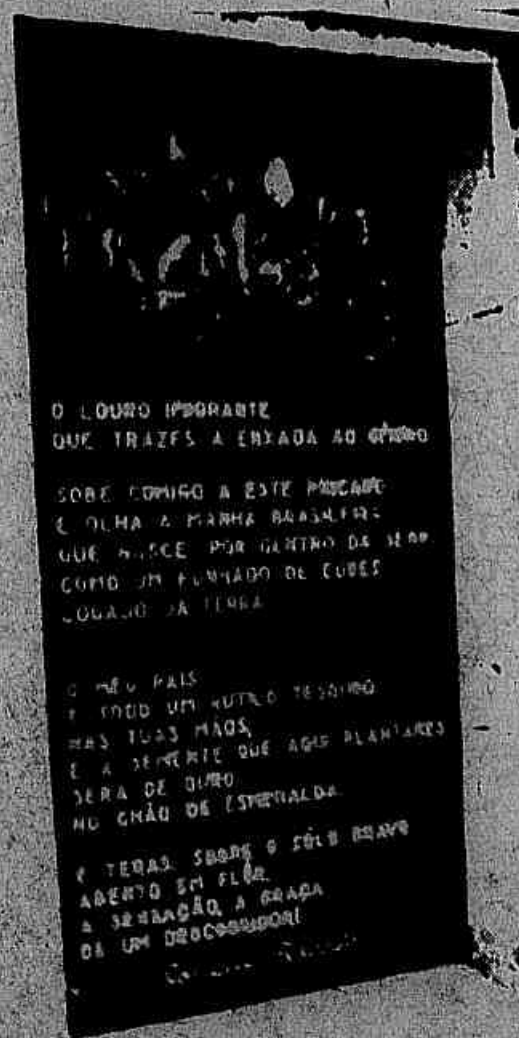 O LOURO IMIGRANTE
QUE TRAZES A ENXADA AO OMBRO
SOBE COMIGO A ESTE
E OLHA A MANHÃ BRASILEIRA
QUE NASCE POR DENTRO DA
COMO UM PUNHADO DE CORES
DA TERRA
O MEU PAIS
É TODO UM RUTILO TESOURO
NAS TUAS MÃOS,
E A SEMENTE QUE AQUI PLANTARES
SERA DE OURO
NO CHÃO DE ESMERALDA
E TERAS SOBRE O SÓLO BRAVO
ABERTO EM FLÔR,
A SENSAÇÃO, A GRAÇA
DE UM DESCOBRIDOR!